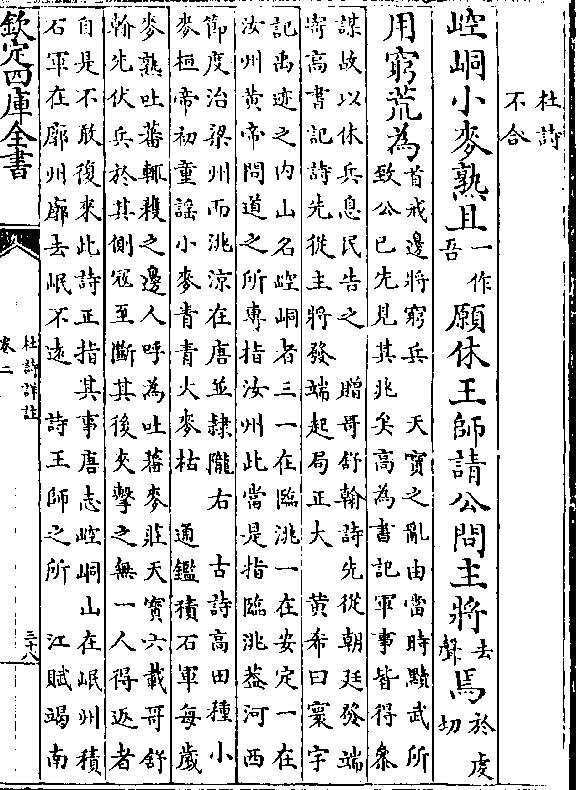 杜詩
不合
崆峒小麥熟且一作吾願休王師請公問主將去聲焉於䖍切
用窮荒為首戒邊將窮兵 天寳之亂由當時黷武所
致公已先見其兆矣高為書記軍事皆得叅
謀故以休兵息民告之 贈哥舒翰詩先從朝廷發端
寄高書記詩先從主將發端起局正大 黄希曰寰宇
記禹迹之内山名崆峒者三一在臨洮一在安定一在
汝州黄帝問道之所專指汝州此當是指臨洮葢河西
節度治梁州而洮涼在唐並隸隴右 古詩高田種小
麥桓帝初童謡小麥青青大麥枯 通鑑積石軍每歲
麥熟吐蕃輒穫之邊人呼為吐蕃麥莊天寳六載哥舒
翰先伏兵於其側冦至斷其後夾擊之無一人得返者
自是不敢復來此詩正指其事唐志崆峒山在岷州積
石軍在廓州廓去岷不逺 詩王師之所 江賦竭南
欽定四庫全書
杜詩詳註
卷二
三十八